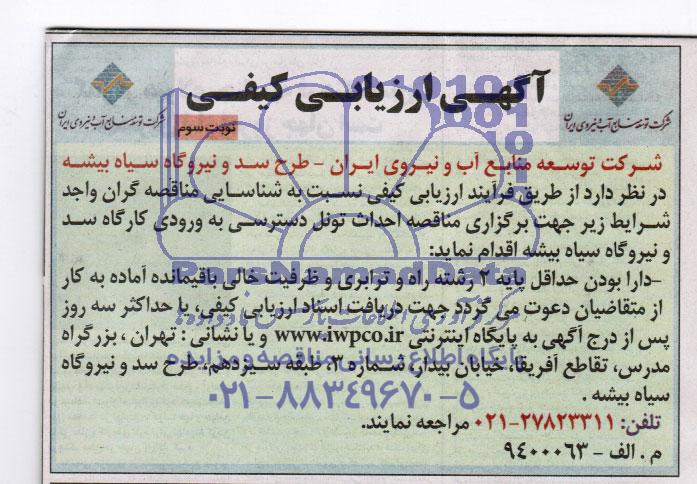 آگهی ارزیابی کیفی
شرکت توسعه منابع آب و نیروی ایران
شرکت توسعه منابع آب و نیروی ایران
نوبت سوم
شرکت توسعه منابع آب و نیروی ایران - طرح سد و نیروگاه سیاه بیشه
در نظر دارد از طریق فرآیند ارزیابی کیفی نسبت به شناسایی مناقصه گران واجد
شرایط زیر جهت برگزاری مناقصه احداث تونل دسترسی به ورودی کارگاه سد
و نیروگاه سیاه بیشه اقدام نماید:
-دارا بودن حداقل پایه ۲ رشته راه و ترابری و ظرفیت خالی باقیمانده آماده به کار
از متقاضیان دعوت می گردد جهت دریافت اسناد ارزیابی کیفی، یا حداکثر سه روز
پس از درج آگهی به پایگاه اینترنتی www.iwpco.ir و یا نشانی: تهران، بزرگراه
مدرس، تقاطع آفریقا، خیابان بیدار، شماره ۳، طبقه سیزدهم، طرح سد و نیروگاه
سیاه بیشه .
تلفن: ۲۷۸۲۳۳۱۱-۰۲۱ مراجعه نمایند.
م . الف - ۹۴۰۰۰۶۳
ParsNamadData
پایگاه اطلاع رسانی مناقصه و مزایده
۰۲۱-۸۸۳۴۹۶۷۰-۵